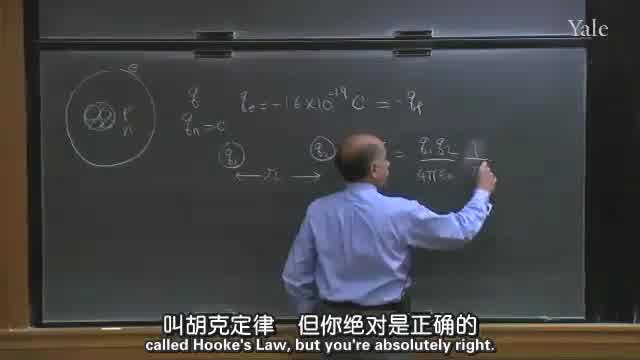 Yale
e
q
p
n
qₑ = -1.6 × 10⁻¹⁹ C = -qₚ
qₙ = 0
q₁
q₂
r
= q₁ q₂ / 4πε₀ 1
叫胡克定律 但你绝对是正确的
called Hooke's Law, but you're absolutely right.